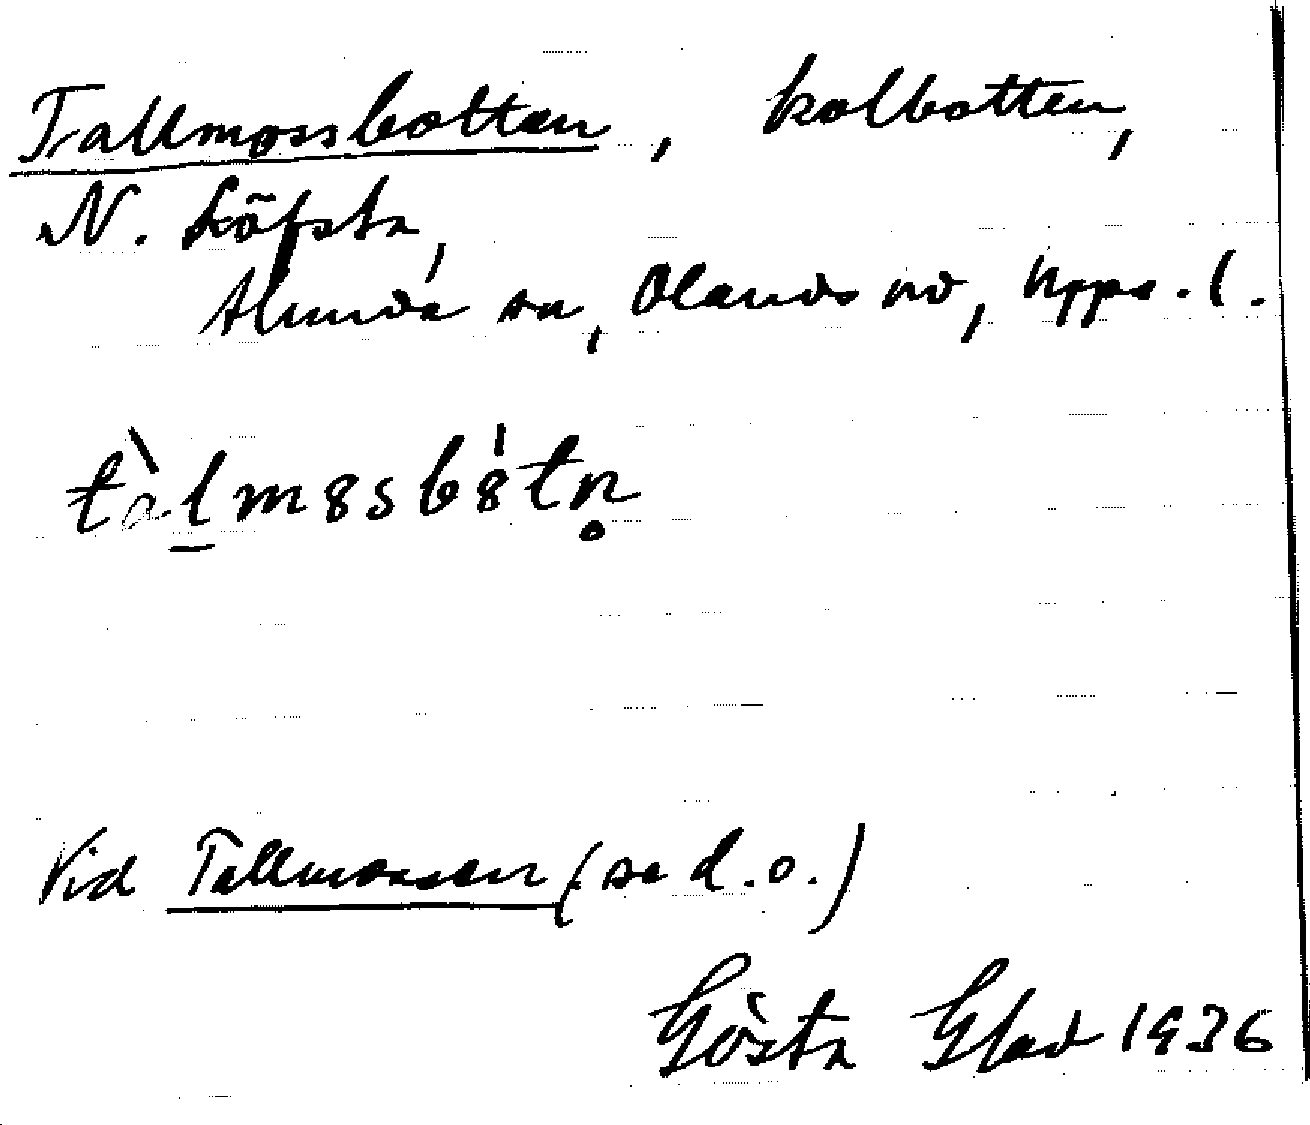 Tallmossbotten, kolbotten,
N. Löfsta,
Alunda sn, Olands hd, Upps. l.
tàlm8sb8́tn̥
Vid Tallmossen (se d.o.)
Gösta Glad 1936